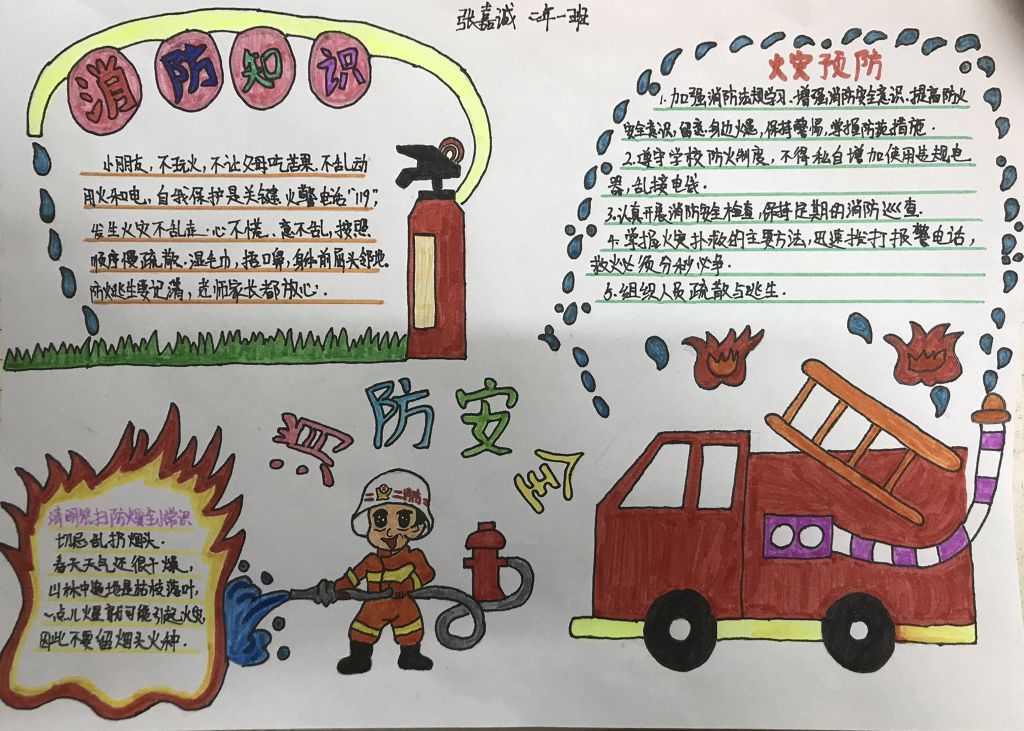 张嘉诚 二年一班
消防知识
小朋友,不玩火,不让父母吃苦果.不乱动
用火和电,自我保护是关键.火警电话"119",
发生火灾不乱走.心不慌、意不乱,按照
顺序慢疏散.湿毛巾,捂口鼻,身体前屈头邻地.
防火逃生要记清,老师家长都放心.
火灾预防
1.加强消防法规学习.增强消防安全意识.提高防火
安全意识,留意身边火患,保持警惕,掌握防范措施.
2.遵守学校防火制度,不得私自增加使用违规电
器,乱接电线.
3.认真开展消防安全检查,保持定期的消防巡查.
4.掌握火灾扑救的主要方法,迅速拨打报警电话,
救火必须分秒必争.
5.组织人员疏散与逃生.
消防安全
消防
清明祭扫防火小常识
切忌乱扔烟头.
春天天气还很干燥,
山林中遍地是枯枝落叶,
一点儿火星就可能引起火灾,
因此不要留烟头火种.